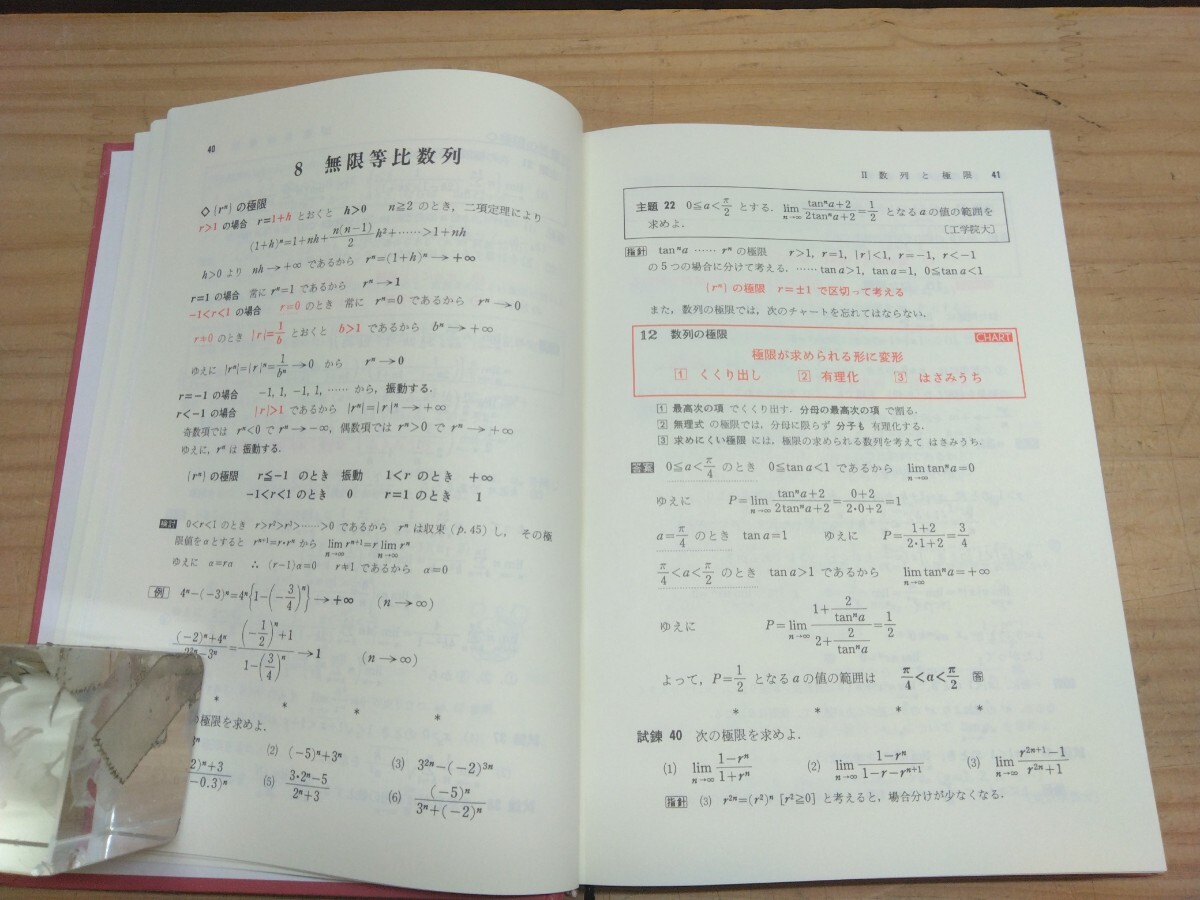 40
8 無限等比数列
◇ {rⁿ} の極限
r>1 の場合 r=1+h とおくと h>0 n≧2 のとき, 二項定理により
(1+h)ⁿ=1+nh+n(n-1)/2 h²+……>1+nh
h>0 より nh→+∞ であるから rⁿ=(1+h)ⁿ→+∞
r=1 の場合 常に rⁿ=1 であるから rⁿ→1
-1<r<1 の場合 r=0 のとき 常に rⁿ=0 であるから rⁿ→0
r≠0 のとき |r|=1/b とおくと b>1 であるから bⁿ→+∞
ゆえに |rⁿ|=|r|ⁿ=1/bⁿ→0 から rⁿ→0
r=-1 の場合 -1, 1, -1, 1, …… から, 振動する.
r<-1 の場合 |r|>1 であるから |rⁿ|=|r|ⁿ→+∞
奇数項では rⁿ<0 で rⁿ→-∞, 偶数項では rⁿ>0 で rⁿ→+∞
ゆえに, rⁿ は 振動する.
{rⁿ} の極限 r≦-1 のとき 振動 1<r のとき +∞
-1<r<1 のとき 0 r=1 のとき 1
検討 0<r<1 のとき r>r²>r³>……>0 であるから rⁿ は収束 (p. 45) し, その極
限値を α とすると rⁿ⁺¹=r・rⁿ から lim n→∞ rⁿ⁺¹=r lim n→∞ rⁿ
ゆえに α=rα ∴ (r-1)α=0 r≠1 であるから α=0
例 4ⁿ-(-3)ⁿ=4ⁿ{1-(-3/4)ⁿ}→+∞ (n→∞)
((-2)ⁿ+4ⁿ)/(2²ⁿ-3ⁿ)=((-1/2)ⁿ+1)/(1-(3/4)ⁿ)→1 (n→∞)
* * * *
の極限を求めよ.
(2) (-5)ⁿ+3ⁿ (3) 3²ⁿ-(-2)³ⁿ
(5) (3・2ⁿ-5)/(2ⁿ+3) (6) (-5)ⁿ/(3ⁿ+(-2)ⁿ)
II 数列と極限 41
主題 22 0≦a<π/2 とする. lim n→∞ (tanⁿa+2)/(2tanⁿa+2)=1/2 となる a の値の範囲を
求めよ. [工学院大]
指針 tanⁿa …… rⁿ の極限 r>1, r=1, |r|<1, r=-1, r<-1
の5つの場合に分けて考える. …… tan a>1, tan a=1, 0≦tan a<1
{rⁿ} の極限 r=±1 で区切って考える
また, 数列の極限では, 次のチャートを忘れてはならない.
12 数列の極限 CHART
極限が求められる形に変形
1 くくり出し 2 有理化 3 はさみうち
1 最高次の項 でくくり出す. 分母の最高次の項 で割る.
2 無理式 の極限では, 分母に限らず 分子も 有理化する.
3 求めにくい極限 には, 極限の求められる数列を考えて はさみうち.
答案 0≦a<π/4 のとき 0≦tan a<1 であるから lim n→∞ tanⁿa=0
ゆえに P=lim n→∞ (tanⁿa+2)/(2tanⁿa+2)=(0+2)/(2・0+2)=1
a=π/4 のとき tan a=1 ゆえに P=(1+2)/(2・1+2)=3/4
π/4<a<π/2 のとき tan a>1 であるから lim n→∞ tanⁿa=+∞
ゆえに P=lim n→∞ (1+2/tanⁿa)/(2+2/tanⁿa)=1/2
よって, P=1/2 となる a の値の範囲は π/4<a<π/2 答
* * * *
試錬 40 次の極限を求めよ.
(1) lim n→∞ (1-rⁿ)/(1+rⁿ) (2) lim n→∞ (1-rⁿ)/(1-r-rⁿ⁺¹) (3) lim n→∞ (r²ⁿ⁺¹-1)/(r²ⁿ+1)
指針 (3) r²ⁿ=(r²)ⁿ [r²≧0] と考えると, 場合分けが少なくなる.